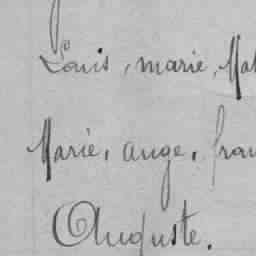 Louis, marie, Mat
Marie, ange, fran
Auguste.